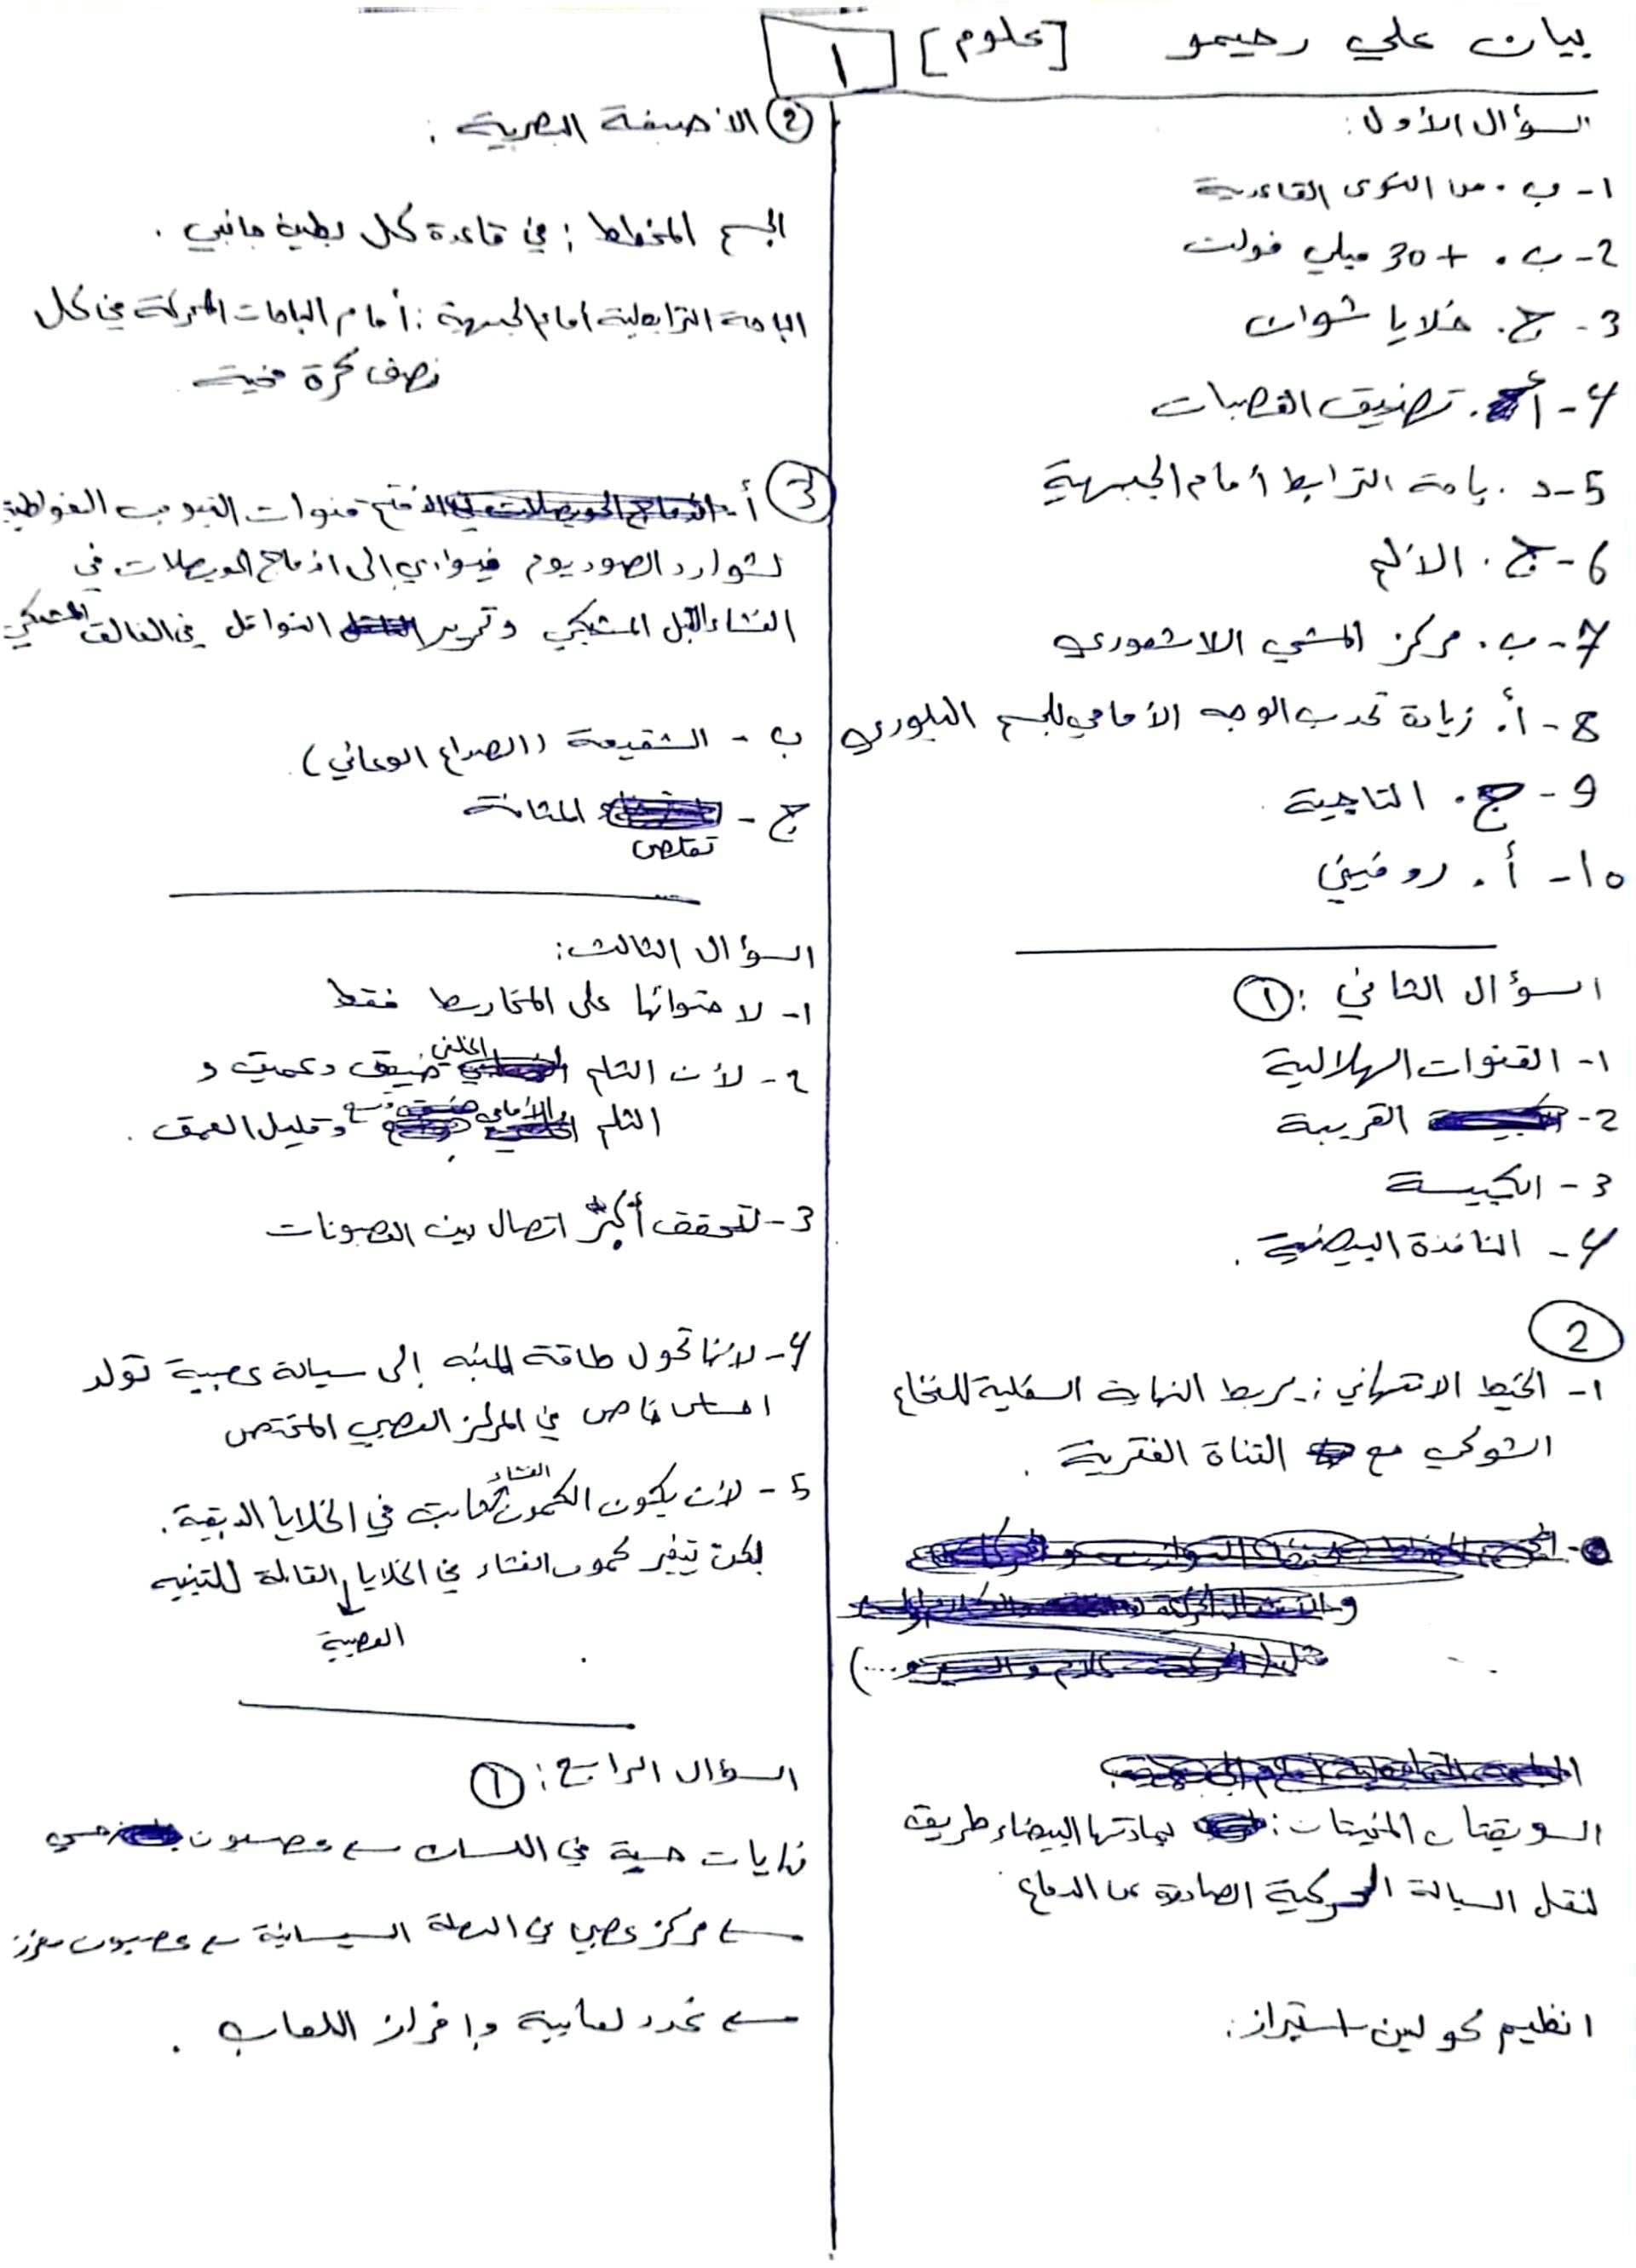 بيان علي رحيمو [علوم] 1
السؤال الأول:
1- ب. من النوى القاعدية
2- ب. +30 ميلي فولت
3- ج. خلايا شوان
4- أ. تضييق القصبات
5- د. باحة الترابط أمام الجبهية
6- ج. الألم
7- ب. مركز المشي اللاشعوري
8- أ. زيادة تحدب الوجه الأمامي للجسم البلوري
9- ج. التاجية
10- أ. روفيني
السؤال الثاني: ①
1- القنوات الهلالية
2- القريبة
3- الكييسة
4- النافذة البيضية.
②
1- الخيط الانتهائي: يربط النهاية السفلية للنخاع
الشوكي مع القناة الفقرية.
السويقتان المخيتان: بمادتها البيضاء طريق
لنقل السيالة الحركية الصادرة عن الدماغ
انظيم كولين استيراز:
② الأصبغة البصرية:
الجسم المخطط: في قاعدة كل بطين جانبي.
الباحة الترابطية أمام الجبهية: أمام الباحات المحركة في كل
نصف كرة مخية
③ أ- فتح قنوات التبويب الفولطية
لشوارد الصوديوم فيؤدي إلى اندماج الحويصلات في
الغشاء القبل المشبكي وتحرير النواقل في الفالق المشبكي
ب- الشقيقة (الصداع الوعائي).
ج- تقلص المثانة
السؤال الثالث:
1- لاحتوائها على المخاريط فقط
2- لأن الثلم الخلفي ضيق وعميق و
الثلم الأمامي وقليل العمق.
3- لتحقق أكبر اتصال بين العصبونات
4- لأنها تحول طاقة المنبه إلى سيالة عصبية تولد
احساس خاص في المركز العصبي المختص
5- لأن يكون الكمون الغشاء ثابت في الخلايا الدبقية.
لكن يتغير كمون الغشاء في الخلايا القابلة للتنبيه
العصبية
السؤال الرابع: ①
نهايات حسية في اللسان ← عصبون حسي
← مركز عصبي في البصلة السيسائية ← عصبون مفرز
← غدد لعابية وإفراز اللعاب.